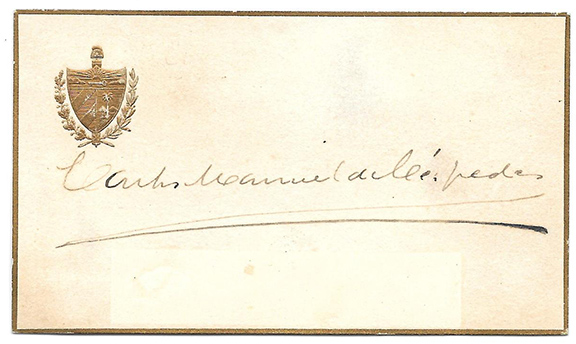 Carlos Manuel de Céspedes